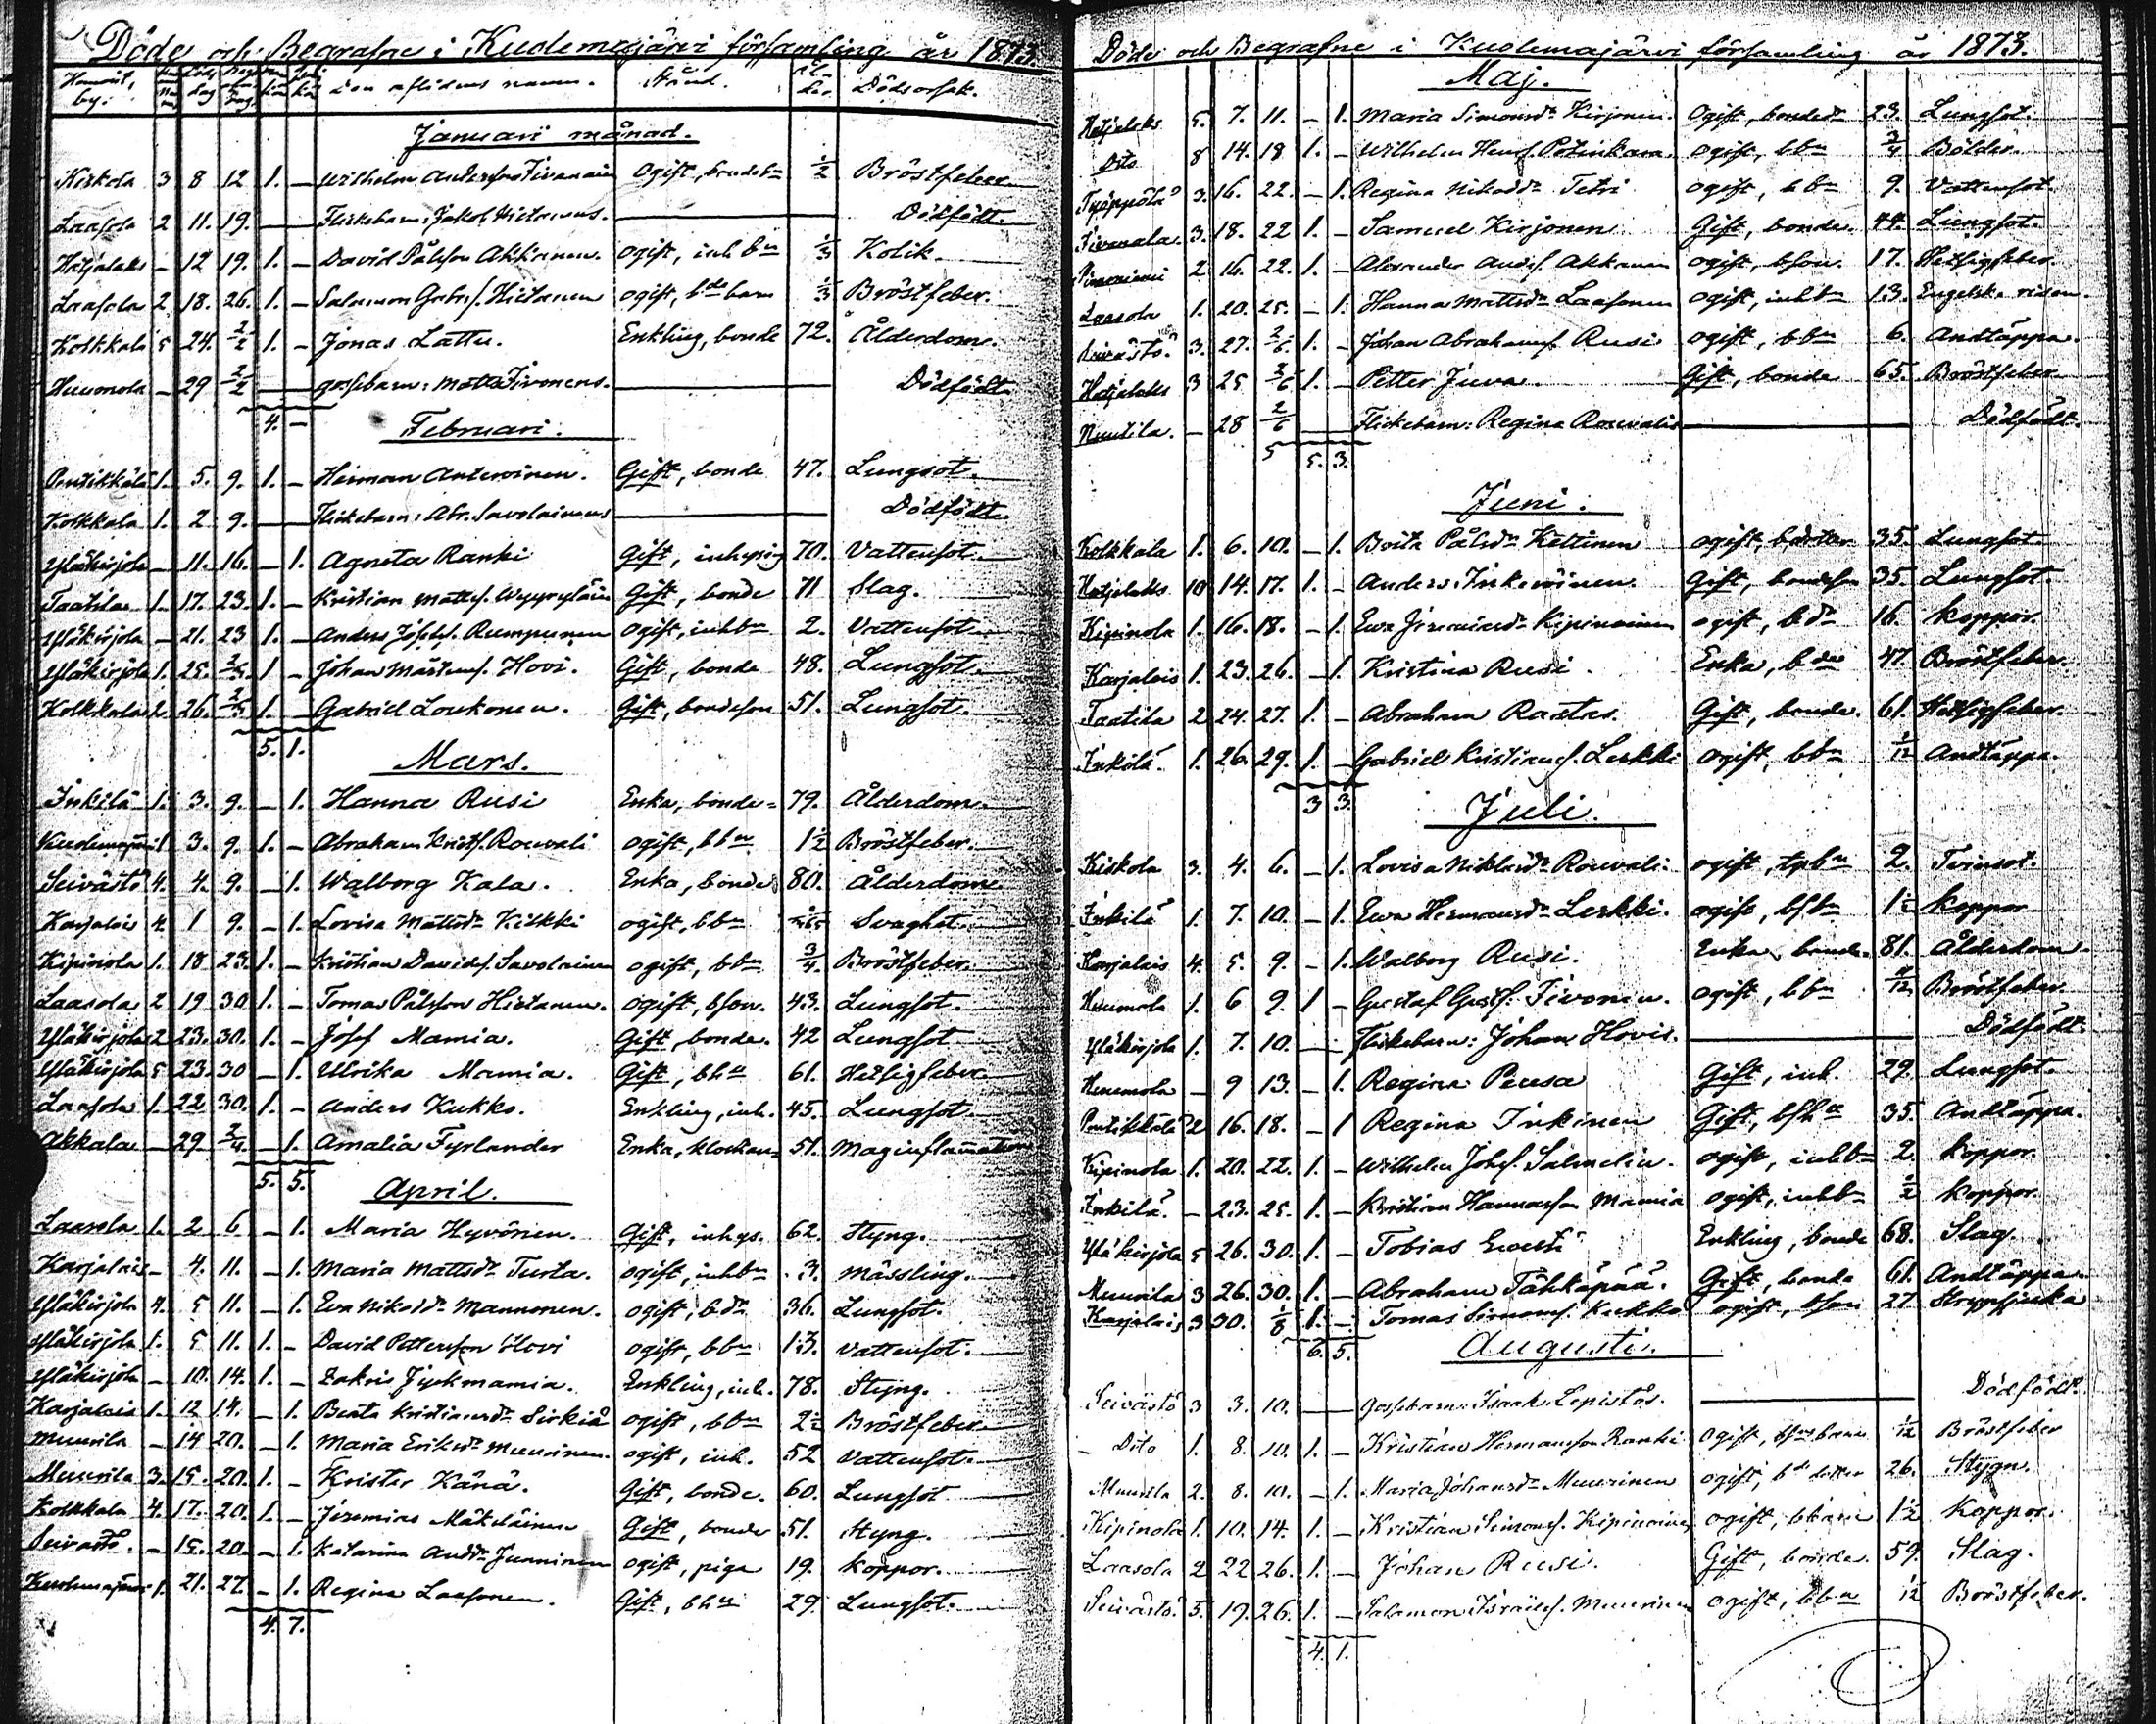 Döde och Begrafne i Kuolemajärvi församling år 1873.
Hemvist, by. dag dag Den aflidnes namn. Stånd. Dödsorsak.
Januari månad.
Kiskola 3 8 12 1. — Wilhelm Andersson Tivonain Ogift, bondebn 1/2 Bröstfeber
Laasola 2 11. 19. — Flickebarn: Jakob Hietanens. — Dödfödt.
Hatjalaks — 12 19. 1. — David Pålsson Akkanen. ogift, inh bn 1/3 Kolik.
Laasola 2 18. 26. 1. — Salomon Gabrs. Hietanen ogift, bde barn 1/3 Bröstfeber.
Kolkkala 5 24. 2/2 1. — Jonas Lattu. Enkling, bonde 72. Ålderdom.
Huumola — 29 2/2 — gossebarn: Matts Tivonens. — Dödfödt
4. —
Februari.
Pentikkälä 1. 5. 9. 1. — Herman Anteroinen. Gift, bonde 47. Lungsot.
Kolkkala 1. 2 9. — Flickebarn: Abr. Savolainens — Dödfödt.
Yläkirjola — 11. 16. — 1. Agneta Ranki Gift, inhysing 70. Vattensot.
Taatila 1. 17. 23. 1. — Kristian Mattss. Gift, bonde 71 Slag.
Yläkirjola — 21. 23 1. — Anders Josefs. Rumpunen ogift, inhbn 2. Vattensot
Yläkirjola 1. 25. 1 — Johan Mårtens. Hovi. Gift, bonde 48. Lungsot.
Kolkkala 2. 26. 1. — Gabriel Loukonen. Gift, bondeson 51. Lungsot.
5. 1.
Mars.
Inkilä 1. 3. 9. — 1. Hanna Rusi Enka, bonde= 79. Ålderdom.
Kuolemajärvi 1 3. 9. 1. — Abraham Krists. Rouvali ogift, bbn 1 1/2 Bröstfeber.
Seivästö 4. 4. 9. — 1. Walborg Kala. Enka, bonde 80. Ålderdom
Karjalais 4. 1 9. — 1. Lovisa Mattsdr Kilkki ogift, bbn Svaghet.
Kipinola 1. 18 23. 1. — Kristian Davids. Savolainen ogift, bbn 3/4. Bröstfeber.
Laasola 2 19 30. 1. — Tomas Pålsson Hietanen. ogift, bson. 43. Lungsot.
Yläkirjola 2 23. 30. 1. — Josef Mamia. Gift, bonde. 42 Lungsot
Yläkirjola 5 23. 30 — 1. Ulrika Mamia. Gift, bhu 61. Hetsigfeber
Laasola 1. 22 30. 1. — Anders Kukko. Enkling, inh. 45. Lungsot
Akkala — 29. 2/4. — 1. Amalia Fyrlander Enka, klockar= 51. Maginflammation
5. 5.
April.
Laasola 1. 2 6 — 1. Maria Hyvönen. Gift, inhys. 62. Styng.
Karjalais — 4. 11. — 1. Maria Mattsdr Turta. ogift, inhbn 3. Mässling.
Yläkirjola 4. 5 11. — 1. Eva Nikoddr Mannonen. ogift, bdr 36. Lungsot.
Yläkirjola 1. 5 11. 1. — David Pettersson Hovi ogift, bbn 13. Vattensot.
Yläkirjola — 10. 14. 1. — Zakris Jyckmamia. Enkling, inh. 78. Styng.
Karjalais 1. 12 14. — 1. Beata Kristiansdr Sirkiä ogift, bbn 2 1/2 Bröstfeber
Muurila — 14 20. — 1. Maria Eriksdr Muurinen. ogift, inh. 52 Vattensot.
Muurila 3. 15. 20. 1. — Krister Känä. Gift, bonde. 60. Lungsot
Kolkkala 4. 17. 20. 1. — Jeremias Mäkeläinen Gift, bonde 51. Styng.
Seivästö. — 15. 20. — 1. Katarina Andsdr Junninen ogift, piga 19. Koppor.
Kuolemajärvi 1. 21. 27. — 1. Regina Laasonen. Gift, bhu 29. Lungsot.
4. 7.
Döde och Begrafne i Kuolemajärvi församling år 1873.
Maj.
Hatjalaks 5. 7. 11. — 1. Maria Simonsdr Kirjonen. Ogift, bondedr 23. Lungsot.
Dito 8 14. 18 1. — Wilhelm Henrs. Potinkara. ogift, bbn 3/4 Bölder.
Työppölä 3. 16. 22. — 1. Regina Nikoddr Tetri ogift, bbn 9. Vattensot.
Tivonala. 3. 18. 22 1. — Samuel Kirjonen Gift, bonde. 44. Lungsot.
Pinoniemi 2 16. 22. 1. — Alexander Anders. Akkanen ogift, bson. 17. Hetsigfeber.
Laasola 1. 20. 25. — 1. Hanna Mattsdr Laasonen ogift, inhbn 13. Engelska risen.
Seivästö. 3. 27. 2/6. 1. — Johan Abrahams. Rusi ogift, bbn 6. Andtäppa.
Hatjalaks 3 25 2/6 1. — Petter Juva. Gift, bonde 65. Bröstfeber
Muurila. — 28 2/6 — Flickebarn: Regina Rouvalis — Dödfödt.
5 5. 3.
Juni.
Kolkkala 1. 6. 10. — 1. Brita Pålsdr Kettinen ogift, bdotter 35. Lungsot
Hatjalaks 10 14. 17. 1. — Anders Inkeroinen. Gift, bondeson 35. Lungsot.
Kipinola 1. 16. 18. — 1. Eva Jeremiasdr Kipinoinen ogift, bdr 16. Koppor.
Karjalais 1. 23. 26. — 1. Kristina Rusi. Enka, bde 47. Bröstfeber.
Taatila 2 24. 27. 1. — Abraham Raatas. Gift, bonde. 61. Hetsigfeber.
Inkilä. 1. 26. 29. 1. — Gabriel Kristians. Leskki ogift, bbn 1/12 Andtäppa.
3 3.
Juli.
Kiskola 3. 4. 6. — 1. Lovisa Niklasdr Rouvali. ogift, tpbn 2. Tvinsot.
Inkilä 1. 7. 10. — 1. Eva Hermansdr Leskki. ogift, bsbn 1 1/2 Koppor
Karjalais 4. 5. 9. — 1. Walborg Rusi. Enka, bonde. 81. Ålderdom.
Huumola 1. 6 9. 1 — Gustaf Gusts. Tivonen. ogift, bbn Bröstfeber
Yläkirjola 1. 7. 10. — Flickebarn: Johan Hovis. — Dödfödt.
Huumola — 9 13. — 1. Regina Peusa Gift, inh. 29. Lungsot.
Pentikkälä 2 16. 18. — 1 Regina Inkinen Gift, bshu 35. Andtäppa.
Kipinola 1. 20. 22. 1. — Wilhelm Johs. Salmelin. ogift, inhbn 2. Koppor.
Inkilä. — 23. 25. 1. — Kristian Hannasson Mamia ogift, inhbn 1/2 Koppor.
Yläkirjola 5 26. 30. 1. — Tobias Enkling, bonde 68. Slag.
Muurila 3 26. 30. 1. — Abraham Tähkäpää. Gift, bonde 61. Andtäppa
Karjalais 3 30. 1/8 1. — Tomas Simons. Kukko ogift, bson 27 Strypsjuka
6. 5.
Augusti.
Seivästö 3 3. 10. — Gossebarn: Isaak Lepistös. — Dödfödt.
— Dito 1. 8. 10. 1. — Kristian Hermansson Ranki ogift, barn 1/12 Bröstfeber
Muurila 2. 8. 10. — 1. Maria Johansdr Muurinen ogift, bde dotter 26. Stygn.
Kipinola 1. 10. 14. 1. — Kristian Simons. Kipinoinen ogift, bbarn 1 1/2 Koppor.
Laasola 2 22 26. 1. — Johan Rusi. Gift, bonde. 59. Slag.
Seivästö 5. 19. 26. 1. — Salomon Israels. Muurinen ogift, bbn 1/12 Bröstfeber.
4. 1.